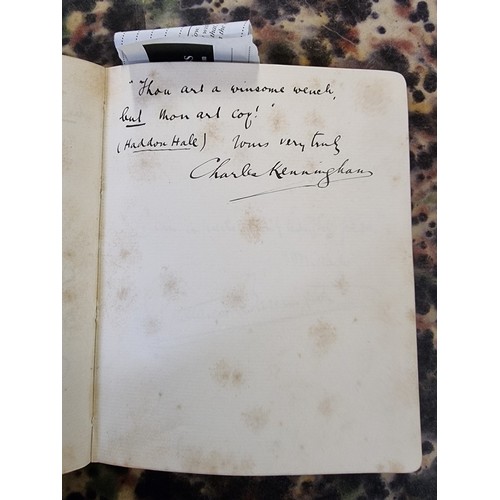 "Thou art a winsome wench,
but thou art coy!"
(Haddon Hall) Yours very truly
Charles Kenningham